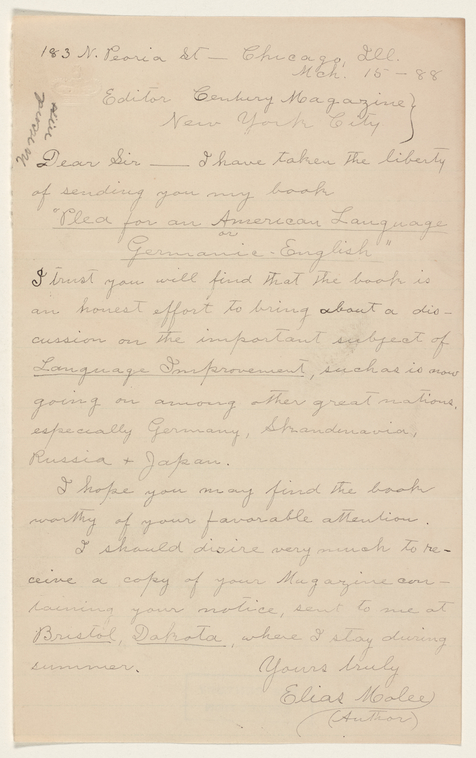 183 N. Peoria St — Chicago, Ill.
Mch. 15 – 88
Editor Century Magazine }
New York City
Dear Sir — I have taken the liberty
of sending you my book
"Plea for an American Language
or
Germanic-English"
I trust you will find that the book is
an honest effort to bring about a dis-
cussion on the important subject of
Language Improvement, such as is now
going on among other great nations,
especially Germany, Skandinavia,
Russia + Japan.
I hope you may find the book
worthy of your favorable attention.
I should disire very much to re-
ceive a copy of your Magazine con-
taining your notice, sent to me at
Bristol, Dakota, where I stay during
summer. Yours truly
Elias Molee
(Author)